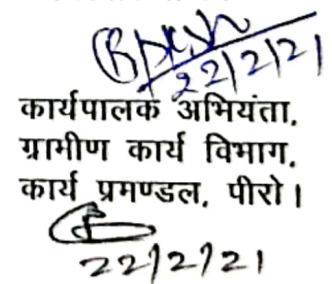 22/2/21
कार्यपालक अभियंता,
ग्रामीण कार्य विभाग,
कार्य प्रमण्डल, पीरो।
22/2/21